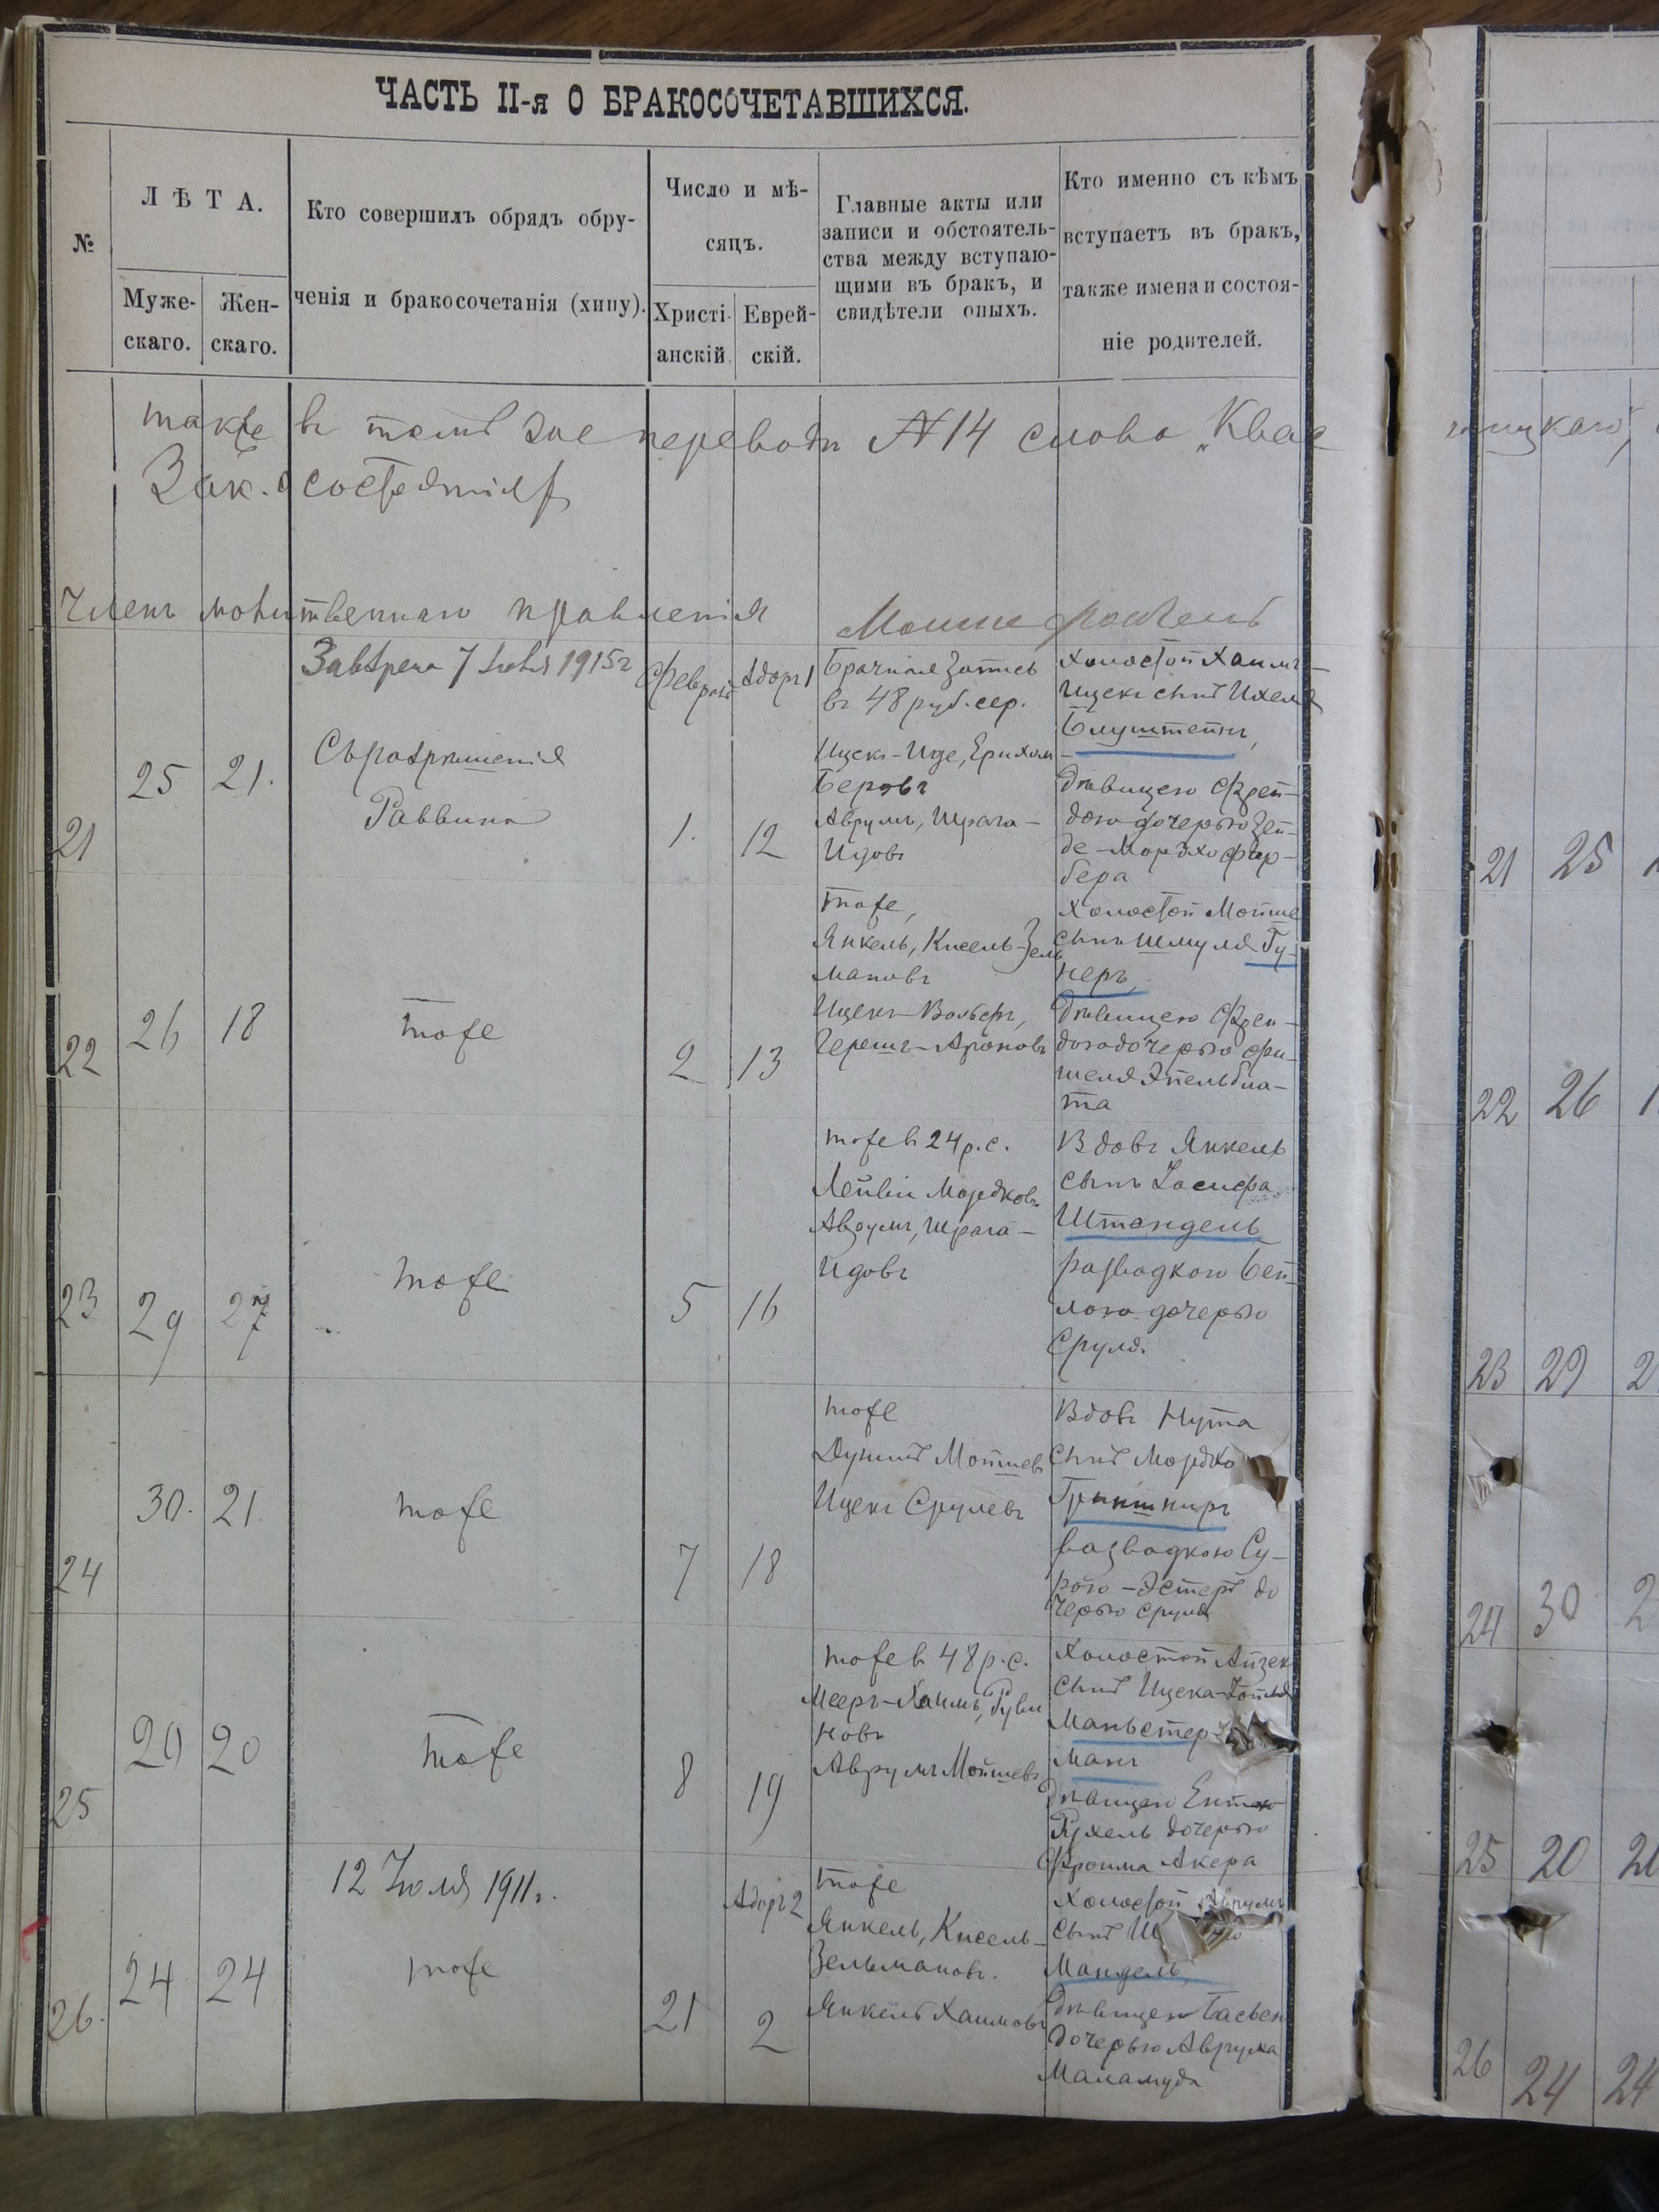 ЧАСТЬ II-я О БРАКОСОЧЕТАВШИХСЯ.
№
ЛѢТА.
Муже-
скаго.
Жен-
скаго.
Кто совершилъ обрядъ обру-
ченія и бракосочетанія (хипу).
Число и мѣ-
сяцъ.
Христі-
анскій.
Еврей-
скій.
Главные акты или
записи и обстоятель-
ства между вступаю-
щими въ бракъ, и
свидѣтели оныхъ.
Кто именно съ кѣмъ
вступаетъ въ бракъ,
также имена и состоя-
ніе родителей.
также въ томъ же переводѣ №14 слово „Квас
Членъ молитвеннаго правленія
1915г
Февраль
Адаръ 1
21
25
21.
Съ разрѣшенія
Раввина
1.
12
Брачная запись
въ 48 руб. сер.
Ицекъ-Иде, Ерихом
Беровъ
Аврумъ, Шрага-
Идовъ
холостой Хаимъ-
Ицекъ сынъ Ихеля
Блуштейнъ,
дѣвицею Фрей-
дою дочерью Зей-
де-Мордко Фер-
бера
22
26
18
тоже
2
13
тоже,
Янкель, Кисель-Зель
мановъ
Ицекъ-Вольфъ,
Гершъ-Ароновъ
холостой Мойше
сынъ Шмуля Гу-
неръ,
дѣвицею Фрей-
дою дочерью Фи-
шеля Эпельбла-
та
23
29
27
тоже
5
16
тоже въ 24 р. с.
Лейви Мордковъ
Аврумъ, Шрага-
Идовъ
Вдовъ Янкель
сынъ Iосифа
Штендель
разводкою Бей-
лою дочерью
Сруля.
24
30.
21
тоже
7
18
тоже
Мойшевъ
Ицекъ Срулевъ
Вдовъ Нута
сынъ Мордко
разводкою Су-
рою-Эстеръ до
черью Сруля
25
20
20
тоже
8
19
тоже въ 48 р. с.
Мееръ-Хаимъ, Руви
новъ
Аврумъ Мойшевъ
Холостой Айзек
сынъ Ицека
Маньстер
манъ
дѣвицею
Рухель дочерью
Фроима Акера
12 Iюля 1911г.
Адаръ 2
26.
24
24
тоже
21
2
тоже
Янкель, Кисель-
Зельмановъ.
Янкель Хаимовъ
Холостой Аврумъ
сынъ
Мандель,
дѣвицею Басьею
дочерью Аврума
Маламуда
21
25
22
26
23
29
24
30
25
20
26
24
24